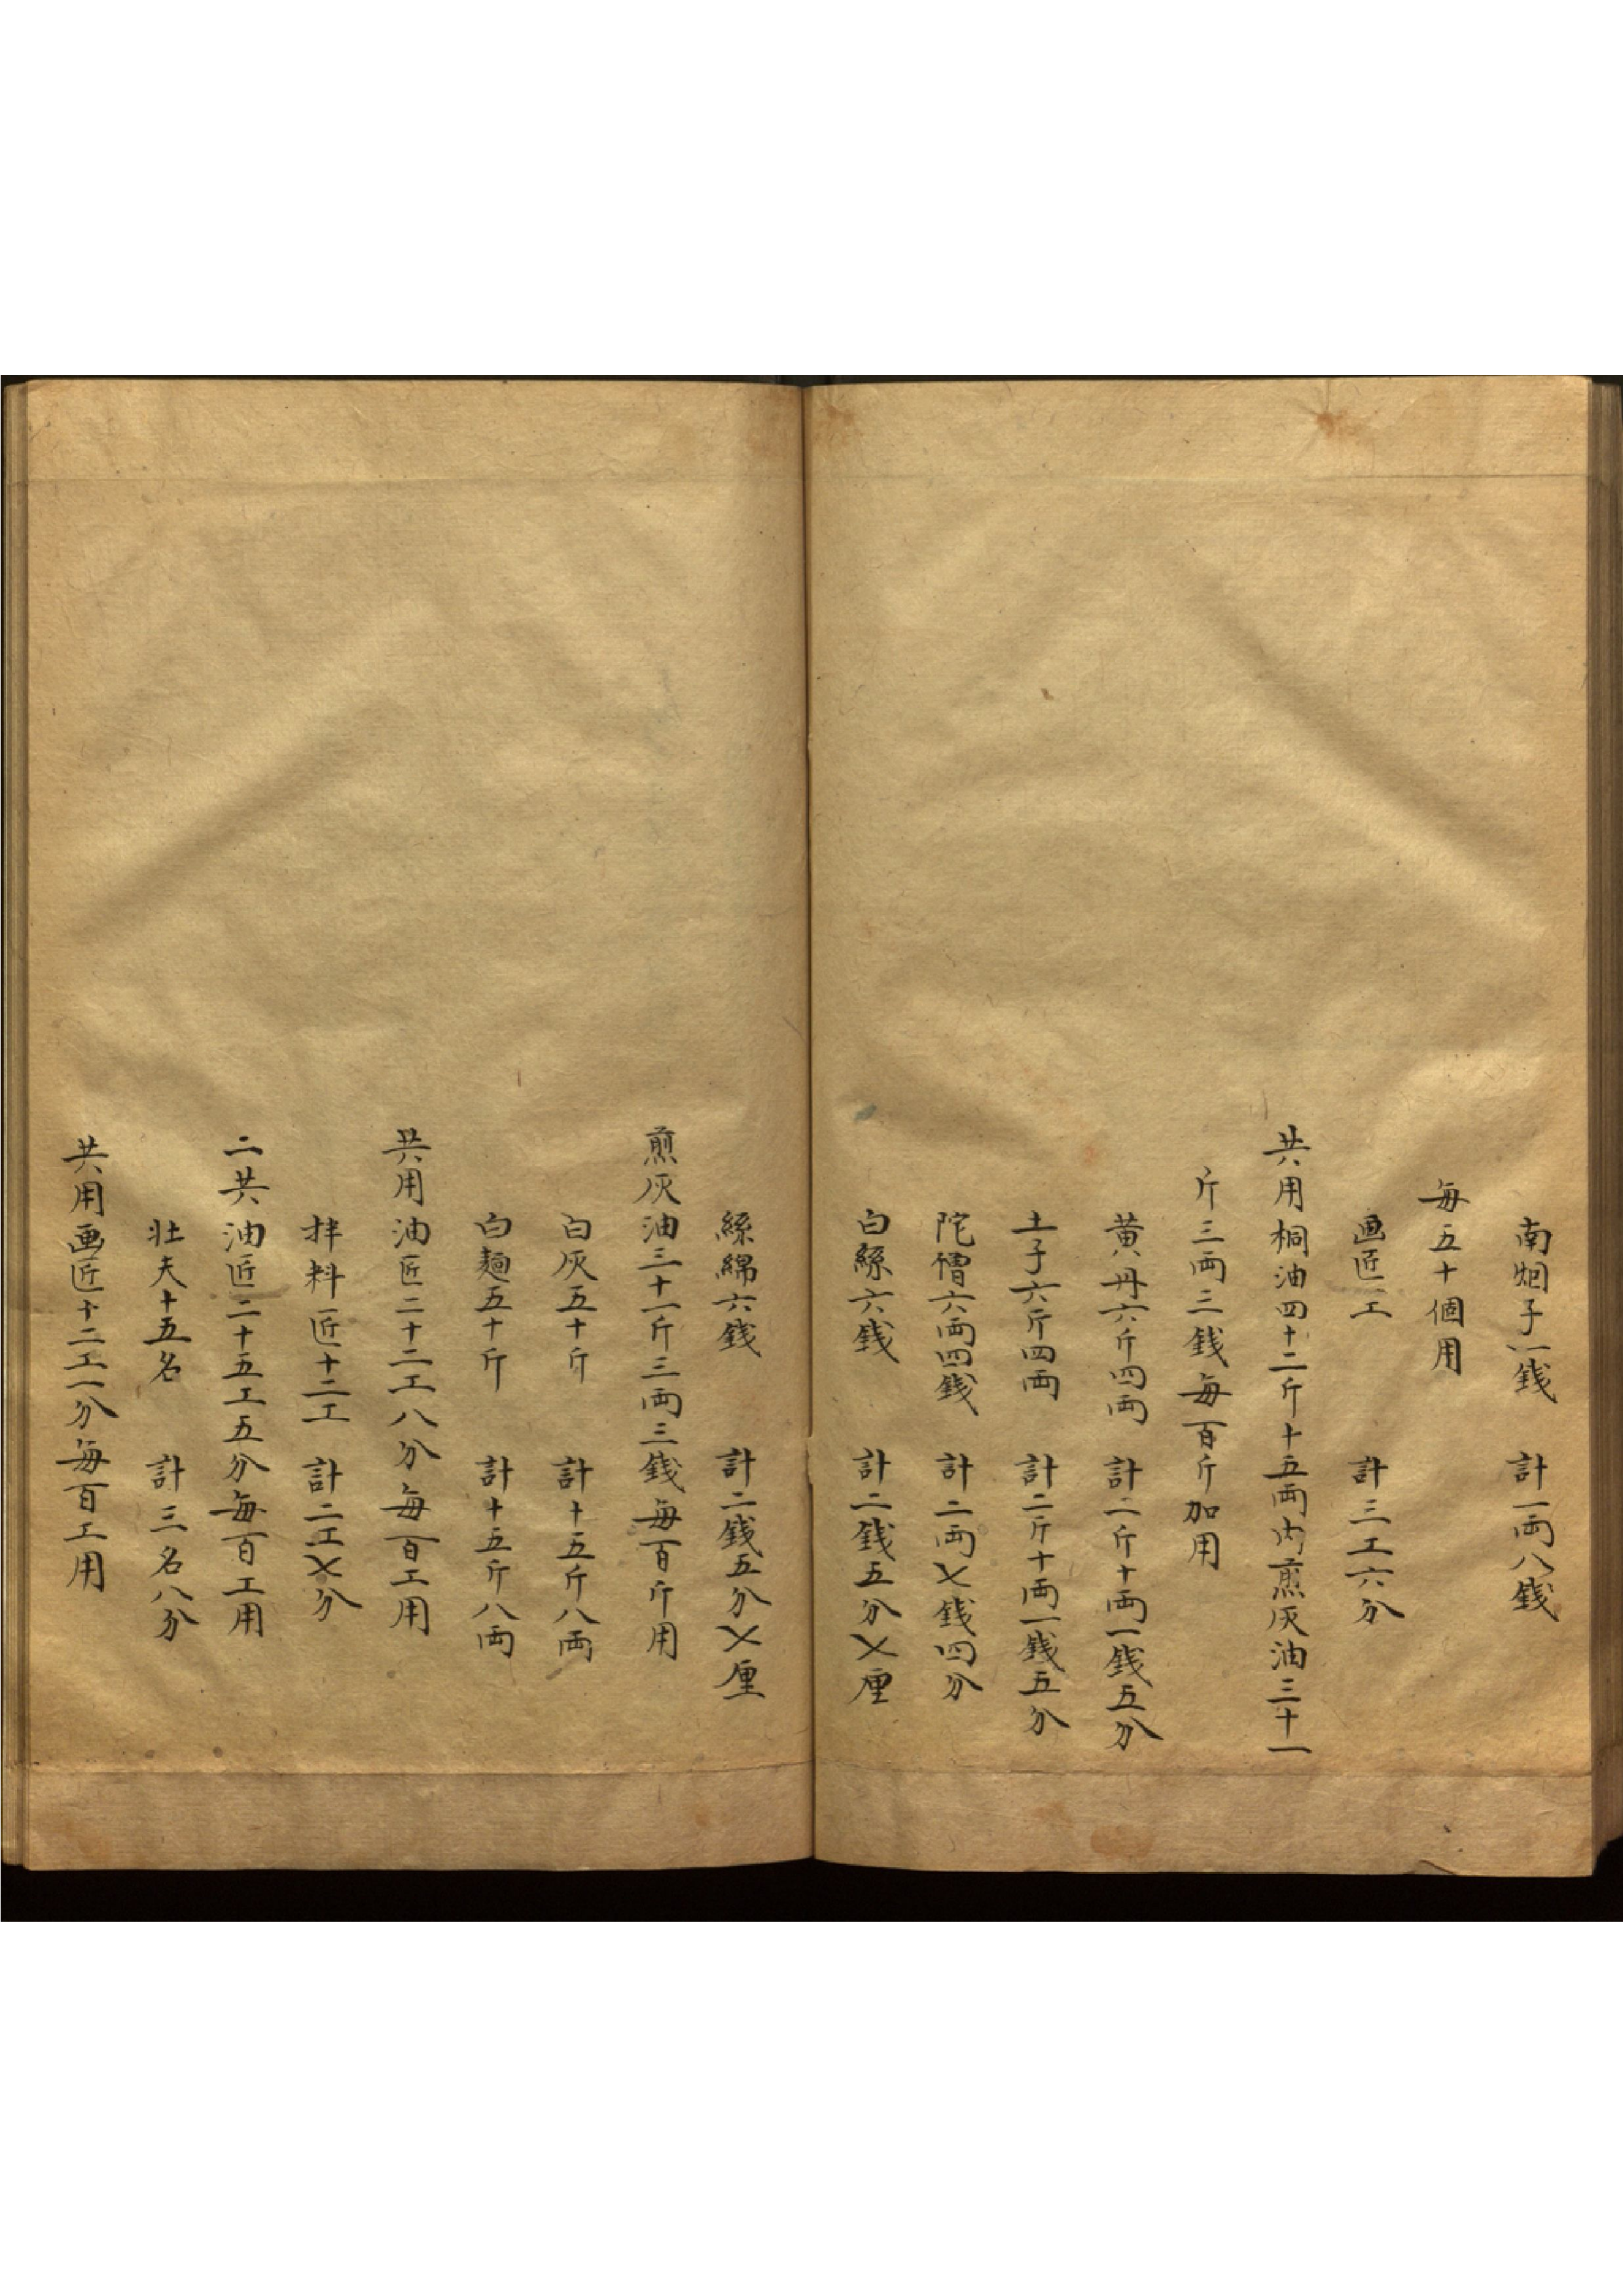 南烟子一錢　計一両八錢
每五十個用
画匠工　計三工六分
共用桐油四十二斤十五両内煎灰油三十一
斤三両三錢每百斤加用
黄丹六斤四両　計二斤十両一錢五分
土子六斤四両　計二斤十両一錢五分
陀僧六両四錢　計二両〤錢四分
白絲六錢　計二錢五分〤厘
絲綿六錢　計二錢五分〤厘
煎灰油三十一斤三両三錢每百斤用
白灰五十斤　計十五斤八両
白麵五十斤　計十五斤八両
共用油匠二十二工八分每百工用
拌料匠十二工　計二工〤分
二共油匠二十五工五分每百工用
壮夫十五名　計三名八分
共用画匠十二工一分每百工用